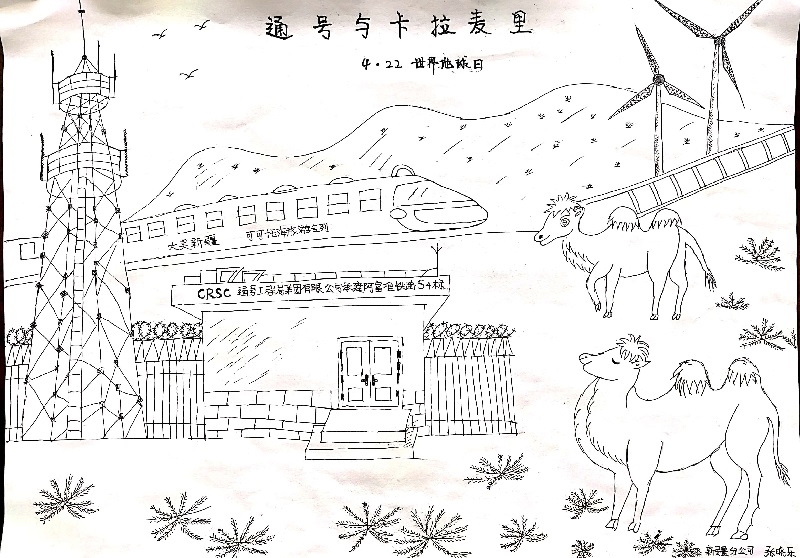 通号与卡拉麦里
4·22 世界地球日
大美新疆
可可托海旅游专列
CRSC 通号工程局集团有限公司承建阿富准铁路S4标
新疆分公司